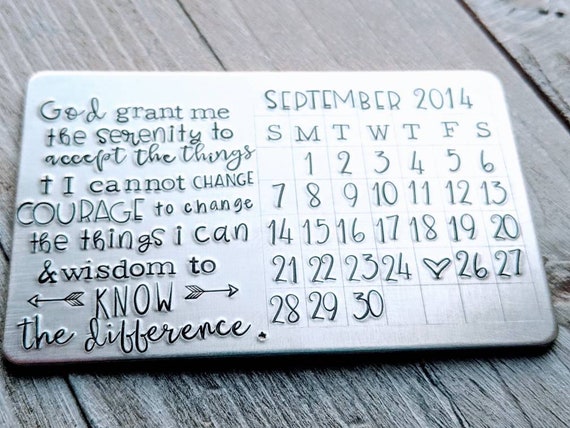 God grant me
the serenity to
accept the things
† I cannot CHANGE
COURAGE to change
the things i can
& wisdom to
KNOW
the difference.
SEPTEMBER 2014
S M T W T F S
1 2 3 4 5 6
7 8 9 10 11 12 13
14 15 16 17 18 19 20
21 22 23 24 ♡ 26 27
28 29 30